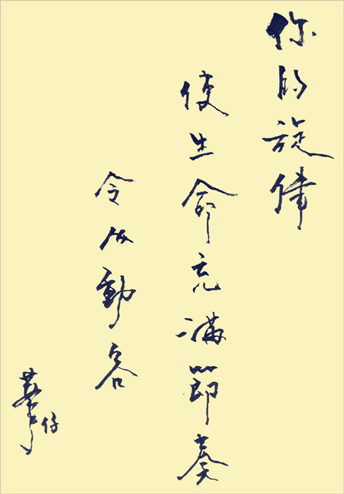 你的旋律
使生命充滿節奏
令動容
華仔